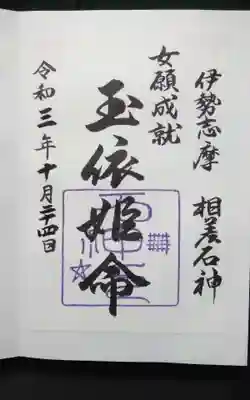 伊勢志摩 相差石神
女願成就
玉依姫命
令和三年十月二十四日